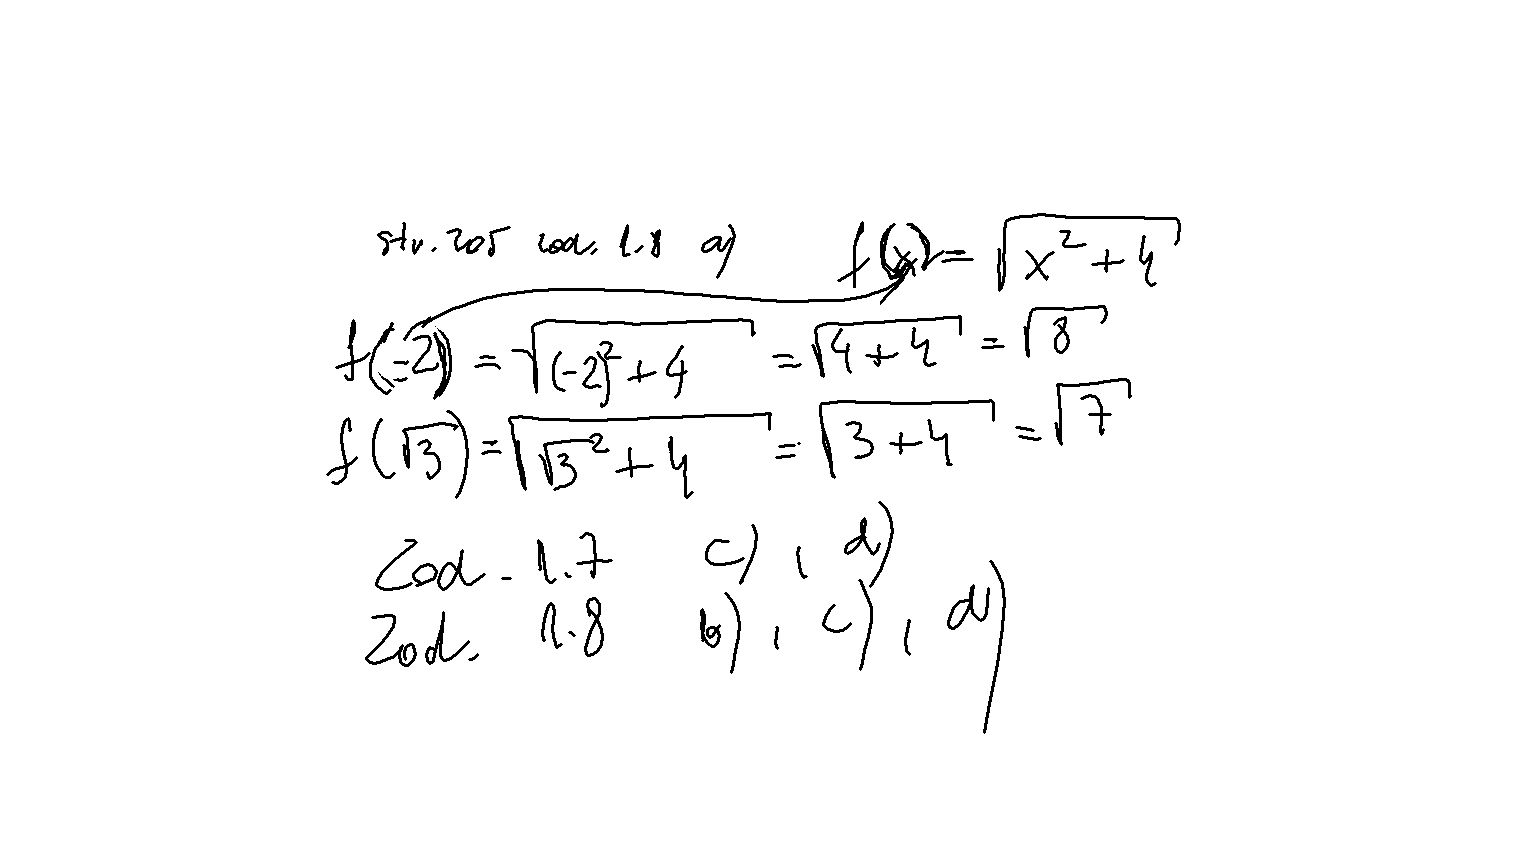 str. 205 zad. 1.8 a) f(x) = √(x² + 4)
f(-2) = √((-2)² + 4) = √(4 + 4) = √8
f(√3) = √(√3² + 4) = √(3 + 4) = √7
Zad. 1.7 c), d)
Zad. 1.8 b), c), d)